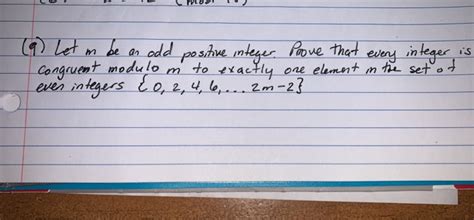 (9) Let m be an odd positive integer. Prove that every integer is
congruent modulo m to exactly one element in the set of
even integers {0, 2, 4, 6, ... 2m-2}